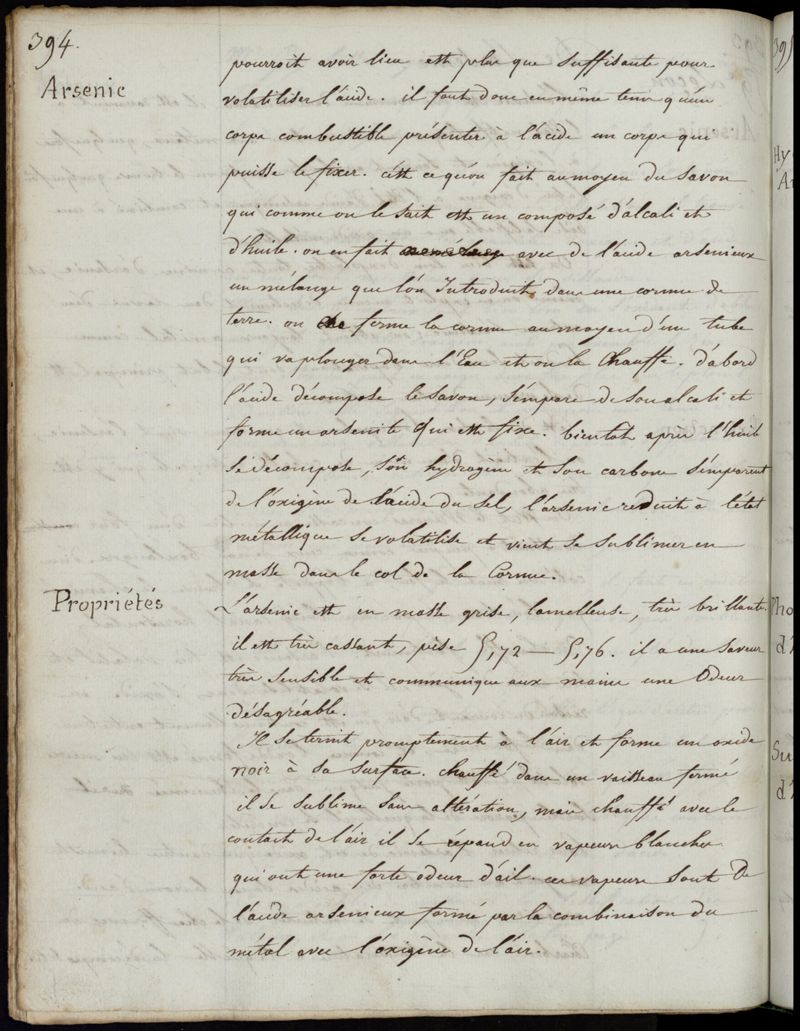 394.
Arsenic
pourroit avoir lieu est plus que suffisante pour
volatiliser l'acide. il faut donc en même tems qu'un
corps combustible présenter à l'acide un corps qui
puisse le fixer. c'est ce qu'on fait au moyen du savon
qui comme on le sait est un composé d'alcali et
d'huile. on en fait avec de l'acide arsenieux
un mélange que l'on Introduit dans une cornue de
terre. on ferme la cornue au moyen d'un tube
qui va plonger dans l'Eau et on la Chauffe. d'abord
l'acide décompose le savon, s'empare de son alcali et
forme un arsenite qui est fixe. bientot après l'huile
se décompose, son hydrogène et son carbone s'emparent
de l'oxigène de l'acide du sel, l'arsenic reduit à l'état
métallique se volatilise et vient se sublimer en
masse dans le col de la Cornue.
Propriétés
L'arsenic est en masse grise, lamelleuse, très brillante.
il est très cassant, pèse 5,72 — 5,76. il a une saveur
très sensible et communique aux mains une Odeur
désagréable.
Il se ternit promptement à l'air et forme un oxide
noir à sa surface. chauffé dans un vaisseau fermé
il se sublime sans altération, mais chauffé avec le
contact de l'air il se répand en vapeurs blanches
qui ont une forte odeur d'ail. ces vapeurs sont De
l'acide arsenieux formé par la combinaison du
métal avec l'oxigène de l'air.